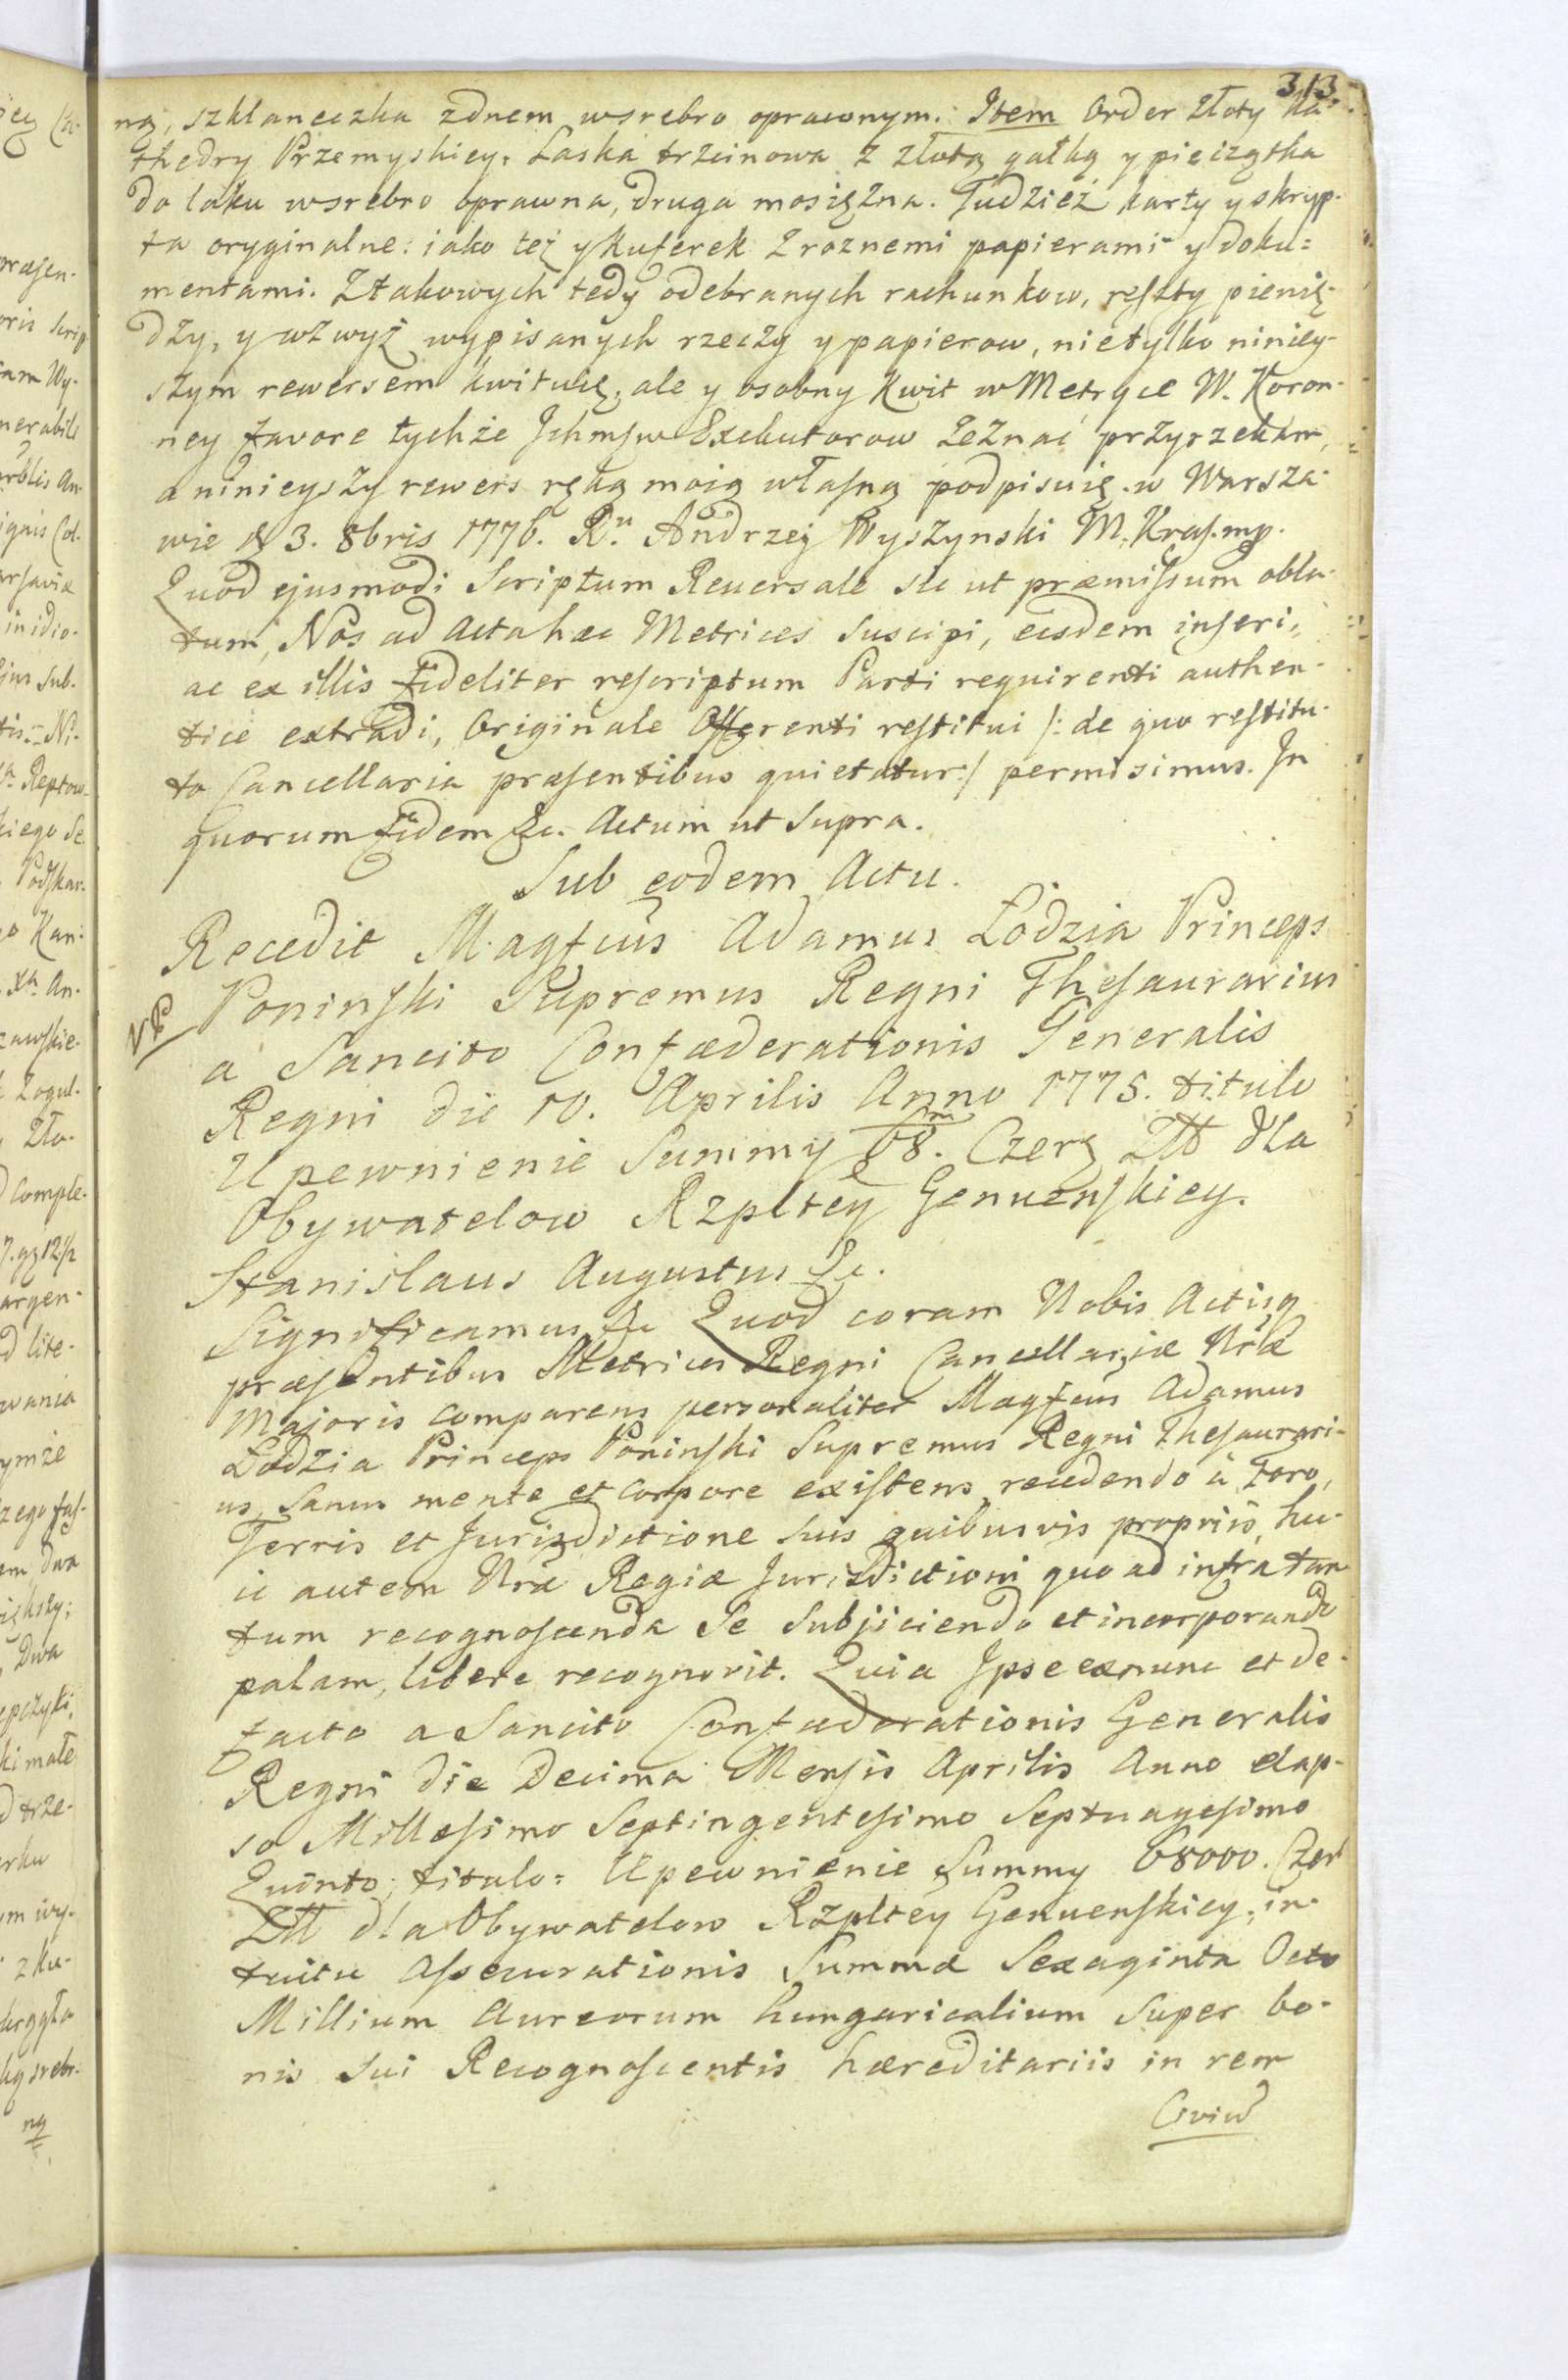 313.
ną, szklaneczka zdnem wsrebro oprawnym. Item Order złoty Ka-
thedry Przemyskiey. Laska trzcinowa z złotą gałką y pieczątka
do laku wsrebro oprawna, druga mosiężna. Tudzież karty y skryp-
ta oryginalne: iako też y kuferek z roznemi papierami y doku=
mentami. Ztakowych tedy odebranych rachunkow, reszty pienię-
dzy, y wzwyż wypisanych rzeczy y papierow, nietylko niniey-
szym rewersem kwituię, ale y osobny Kwit w Metryce W. Koron-
ney favore tychże Jchmsw Exekutorow zeznać przyrzekam,
a ninieyszy rewers ręką moią własną podpisuię. w Warsza-
wie d 3. 8bris 1776. Rn Andrzey Wyszynski M. Kras. mp.
Quod ejusmodi Scriptum Reversale sic ut præmissum obla-
tum, Nos ad Acta hæc Metrices suscipi, eisdem inseri,
ac ex illis fideliter rescriptum Parti requirenti authen-
tice extradi, Originale Offerenti restitui /: de quo restitu-
to Cancellaria præsentibus quietatur :/ permisimus. In
quorum fidem &c. Actum ut Supra.
Sub eodem Actu.
Recedit Magfcus Adamus Łodzia Princeps
Poninski Supremus Regni Thesaurarius
a Sancito Confæderationis Generalis
Regni die 10. Aprilis Anno 1775. titulo
Upewnienie Summy 68m. Czerz Złł dla
Obywatelow Rzpltey Genuenskiey.
Stanislaus Augustus &c.
Significamus &c Quod coram Nobis Actisq
præsentibus Metrices Regni Cancellariæ Nræ
Majoris comparens personaliter Magfcus Adamus
Łodzia Princeps Poninski Supremus Regni Thesaurari-
us, sanus mente et corpore existens, recedendo à Foro,
Terris et Jurisdictione suis quibusvis propriis, hu-
ic autem Nræ Regiæ Jurisdictioni quo ad infra tan
tum recognoscenda Se Subjiciendo et incorporando
palam, libere recognovit. Quia Ipse exnunc et de-
facto a Sancito Confæderationis Generalis
Regni die Decima Mensis Aprilis Anno elap-
so Millesimo Septingentesimo Septuagesimo
Quinto, titulo: Upewnienie Summy 68000. Czer
Złł dla Obywatelow Rzpltey Genuenskiey, in-
tuitu Assecurationis Summæ Sexaginta Octo
Millium Aureorum hungaricalium super bo-
nis sui Recognoscentis hæreditariis in rem
Civiu